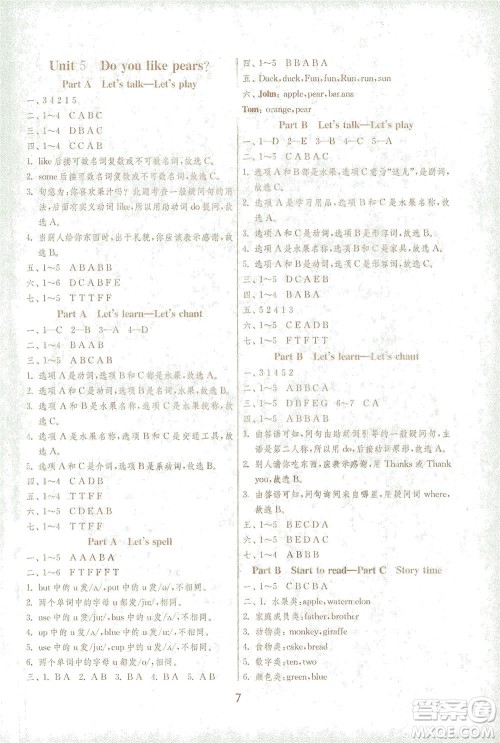 Unit 5 Do you like pears?
Part A Let's talk—Let's play
一、3 4 2 1 5
二、1~4 CABC
三、1~4 DBAC
四、1~5 CABCC
1. like后接可数名词复数或不可数名词,故选C。
2. like后接可数名词复数或不可数名词,故选C。
3. 句意为:你喜欢果汁吗?此题考查一般疑问句的用法,因为有实义动词like,所以用助动词do提问,故选A。
4. 当别人给你东西时,出于礼貌,你应该表示感谢,故选B。
五、1~5 ABABB
六、1~6 DCABFE
七、1~5 TTTFF
Part A Let's learn—Let's chant
一、1—C 2—B 3—A 4—D
二、1~4 BAAA
三、1~5 ABCAB
1. 选项A和B都是水果名称,选项C是动物,故选C。
2. 选项B和C都是水果名称,选项A是动词,故选A。
3. 选项A和B都是水果名称,选项C是水果统称,故选C。
4. 选项A是水果名称,选项B和C是交通工具,故选A。
5. 选项A和C都是动词,选项B是水果名称,故选B。
四、1~4 CADB
五、1~4 TTFF
六、1~5 CDEAB
七、1~4 TTFF
Part A Let's spell
一、1~5 AAABA
二、1~6 FTFFFT
1. but中的u发/ʌ/,put中的u发/u/,不同。
2. 两个单词中的字母u都发/ʌ/,相同。
3. use中的u发/juː/,bus中的u发/ʌ/,不同。
4. up中的u发/ʌ/,cute中的u发/juː/,不同。
5. use中的u发/juː/,cup中的u发/ʌ/,不同。
6. 两个单词中的字母u都发/ʌ/,相同。
三、1. BA 2. BA 3. AB 4. BA 5. BA
四、1~5 BBABA
五、Duck, duck, Fun, fun, Run, run, sun
六、John: apple, pear, banana
Tom: orange, pear
Part B Let's talk—Let's play
一、1~5 ABABB
二、1~5 CCBAC
1. 选项A和B都是水果,选项C意为"这儿",故选C。
2. 选项A是学习用品,选项B和C是水果,故选A。
4. 选项A和C是水果,选项B是家具,故选B。
5. 选项A和B是动词,选项C是水果,故选C。
三、1~5 BCABC
四、1~5 DCAEB
五、5 2 4 3 1
六、1~4 TFTF
七、1~5 ABAAB
Part B Let's learn—Let's chant
一、3 1 4 5 2
二、1~5 DBEGF 6~7 CA
三、1~4 ABBB
四、1~3 ABB
1. 由答语可知,问句由助动词引导的一般疑问句,主语为第二人称you,故选A。
2. 别人请你吃东西,应表示感谢,用Thanks或Thank you,故选B。
3. 由答语可知,问句询问来自哪里,故选B。
五、1~5 BECDA
六、1~5 BEDAC
七、1~5 ABBAB
Part B Start to read—Part C Story time
一、1~5 BACBA
二、1. 水果类:apple, watermelon
2. 家庭成员类:father, brother
3. 动物类:monkey, giraffe
4. 食物类:cake, bread
5. 数字类:ten, eighteen
6. 颜色类:green, brown
7
答案圈
MXQE.COM